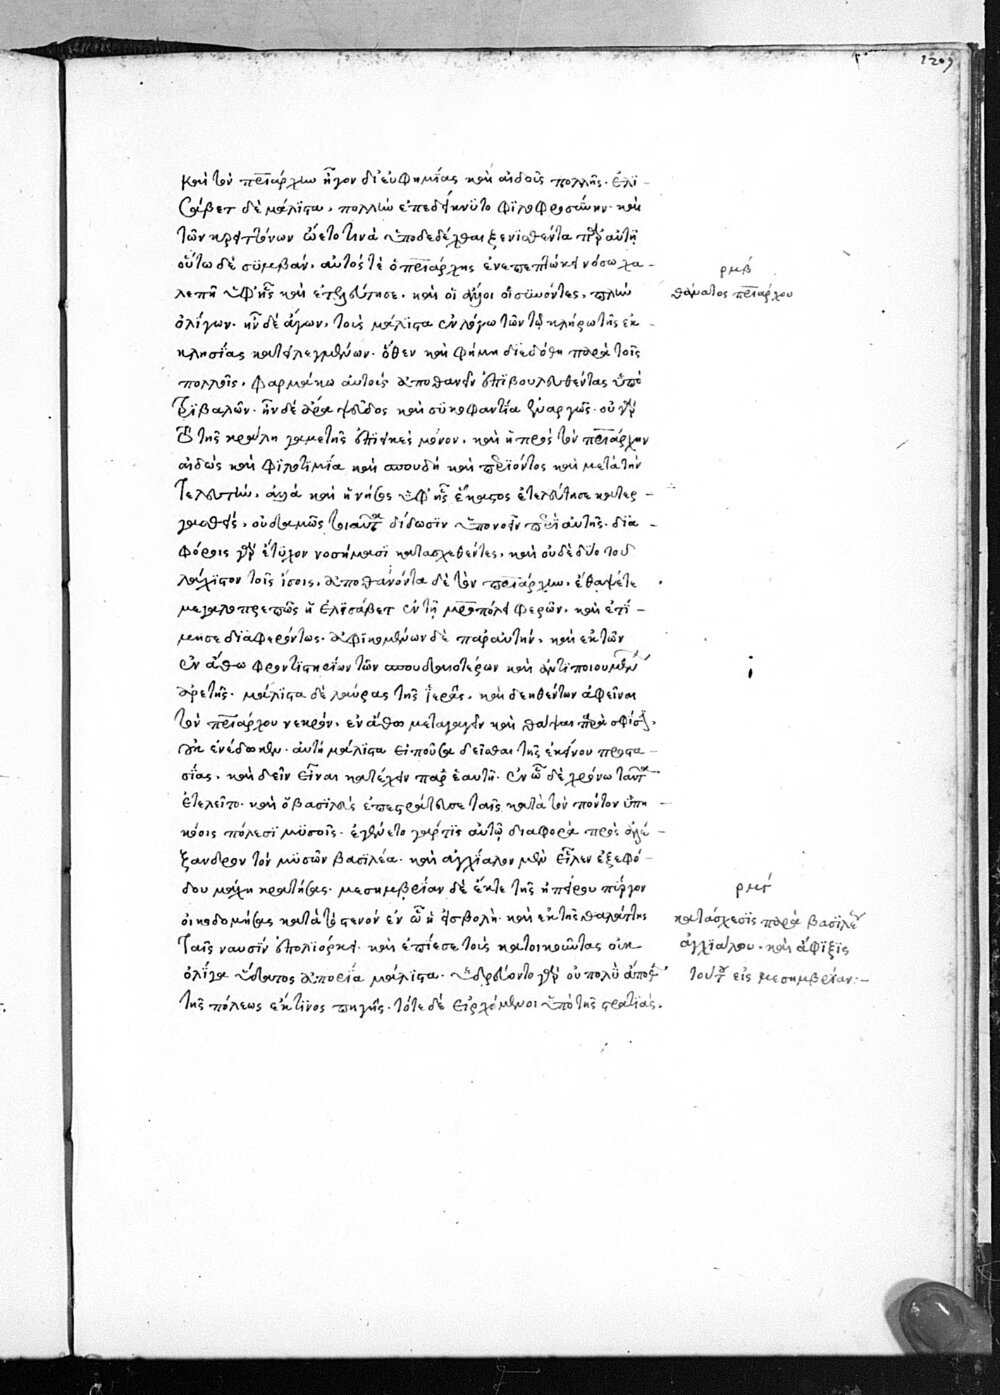 1209
καὶ τὸν πριάρχην ἦγον δι' εὐφημίας καὶ αἰδοῦς πολλῆς. ἐλι-
σάβετ δὲ μάλιστα, πολλὴν ἐπεδείκνυτο φιλοφροσύνην. καὶ
τῶν κρειττόνων ᾤετό τινα ὑποδεδέχθαι ξενισθέντα παρ' αὐτῇ
οὕτω δὲ συμβὰν, αὐτός τε ὁ πριάρχης ἐνεπεπτώκει νόσῳ χα-
λεπῇ ὑφ' ἧς καὶ ἐτελεύτησε. καὶ οἱ ἄλλοι οἱ συνόντες, πλὴν
ὀλίγων. ἦν δὲ ἄγων, τοὺς μάλιστα ἐν λόγῳ τῶν τῷ κλήρῳ τῆς ἐκ-
κλησίας κατειλεγμένων. ὅθεν καὶ φήμη διεδόθη παρὰ τοῖς
πολλοῖς, φαρμάκῳ αὐτοὺς ἀποθανεῖν ἐπιβουλευθέντας ὑπὸ
τριβαλῶν. ἦν δὲ ἄρα ψεῦδος καὶ συκοφαντία ἐναργῶς. οὐ γὰρ
τῆς κράλη γαμετῆς ἐπιεικὲς μόνον, καὶ ἡ πρὸς τὸν πριάρχην
αἰδὼς καὶ φιλοτιμία καὶ σπουδὴ καὶ περιόντος καὶ μετὰ τὴν
τελευτὴν, ἀλλὰ καὶ ἡ νόσος ὑφ' ἧς ἕκαστος ἐτελεύτησε κατερ-
γασθεὶς, οὐδαμῶς τοιαύτην δίδωσιν ὑπονοεῖν περὶ αὐτῆς. δια-
φόροις γὰρ ἔτυχον νοσήμασι κατασχεθέντες, καὶ οὐδὲ δύο τοὐ-
λάχιστον τοῖς ἴσοις. ἀποθανόντα δὲ τὸν πριάρχην, ἔθαψέ τε
μεγαλοπρεπῶς ἡ ἐλισάβετ ἐν τῇ μητροπόλει φερῶν. καὶ ἐτί-
μησε διαφερόντως. ἀφικομένων δὲ παρ' αὐτὴν, καὶ ἐκ τῶν
ἐν ἄθῳ φροντιστηρίων τῶν σπουδαιοτέρων καὶ ἀντιποιουμένων
ἀρετῆς. μάλιστα δὲ λαύρας τῆς ἱερᾶς, καὶ δεηθέντων ἀφεῖναι
τὸν πριάρχου νεκρὸν, ἐν ἄθῳ μεταγαγεῖν καὶ θάψαι παρὰ σφίσιν,
οὐκ ἐνέδωκεν. αὐτὴ μάλιστα εἰποῦσα δεῖσθαι τῆς ἐκείνου προστα-
σίας, καὶ δεῖν εἶναι κατέχειν παρ' ἑαυτῇ. ἐν ᾧ δὲ χρόνῳ ταῦτα
ἐτελεῖτο. καὶ ὁ βασιλεὺς ἐπεστράτευσε ταῖς κατὰ τὸν πόντον ὑπη-
κόοις πόλεσι μυσοῖς. ἐγένετο γάρ τις αὐτῷ διαφορὰ πρὸς ἀλέ-
ξανδρον τὸν μυσῶν βασιλέα. καὶ ἀγχίαλον μὲν εἷλεν ἐξ ἐφό-
δου μάχῃ κρατήσας. μεσημβρίαν δὲ ἔκ τε τῆς ἠπείρου πύργον
οἰκοδομήσας κατὰ τὸ στενὸν ἐν ᾧ ἡ εἰσβολὴ. καὶ ἐκ τῆς θαλάττης
ταῖς ναυσὶν ἐπολιόρκει. καὶ ἐπίεσε τοὺς κατοικοῦντας οὐκ
ὀλίγα ὕδατος ἀπορία μάλιστα. ὑδρεύοντο γὰρ οὐ πολὺ ἄποθεν
τῆς πόλεως ἔκ τινος πηγῆς. τότε δὲ εἰργόμενοι ὑπὸ τῆς στρατιᾶς.
ρμβ
θάνατος πριάρχου
ρμγ
κατάσχεσις παρὰ βασιλέως
ἀγχιάλου. καὶ ἄφιξις
τούτου εἰς μεσημβρίαν:-